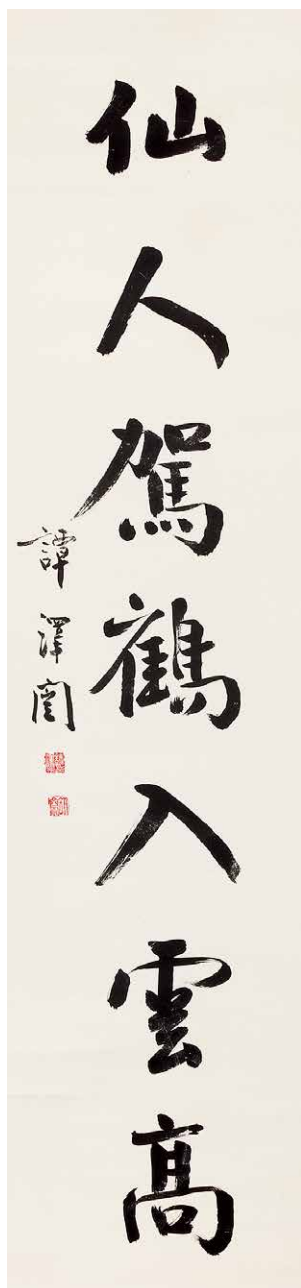 仙人駕鶴入雲高
譚澤闓